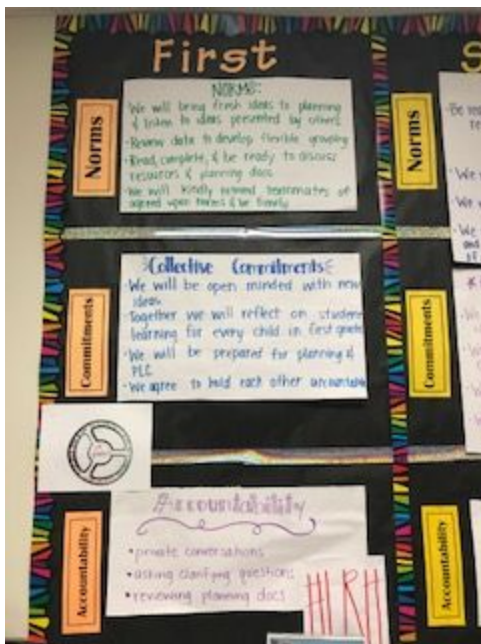 First
S
Norms
NORMS:
·We will bring fresh ideas to planning
& listen to ideas presented by others
·Review data to develop flexible grouping
·Read, complete, & be ready to discuss
resources & planning docs
·We will kindly remind teammates of
agreed upon norms & be
Norms
·Be
·We
·We
·We
and
Commitments
Collective Commitments
·We will be open minded with new
ideas
·Together we will reflect on student
learning for every child in first grade
·We will be prepared for planning &
PLC
·We agree to hold each other accountable
Commitments
Accountability
Accountability
•private conversations
•asking clarifying questions
•reviewing planning docs
Accountability